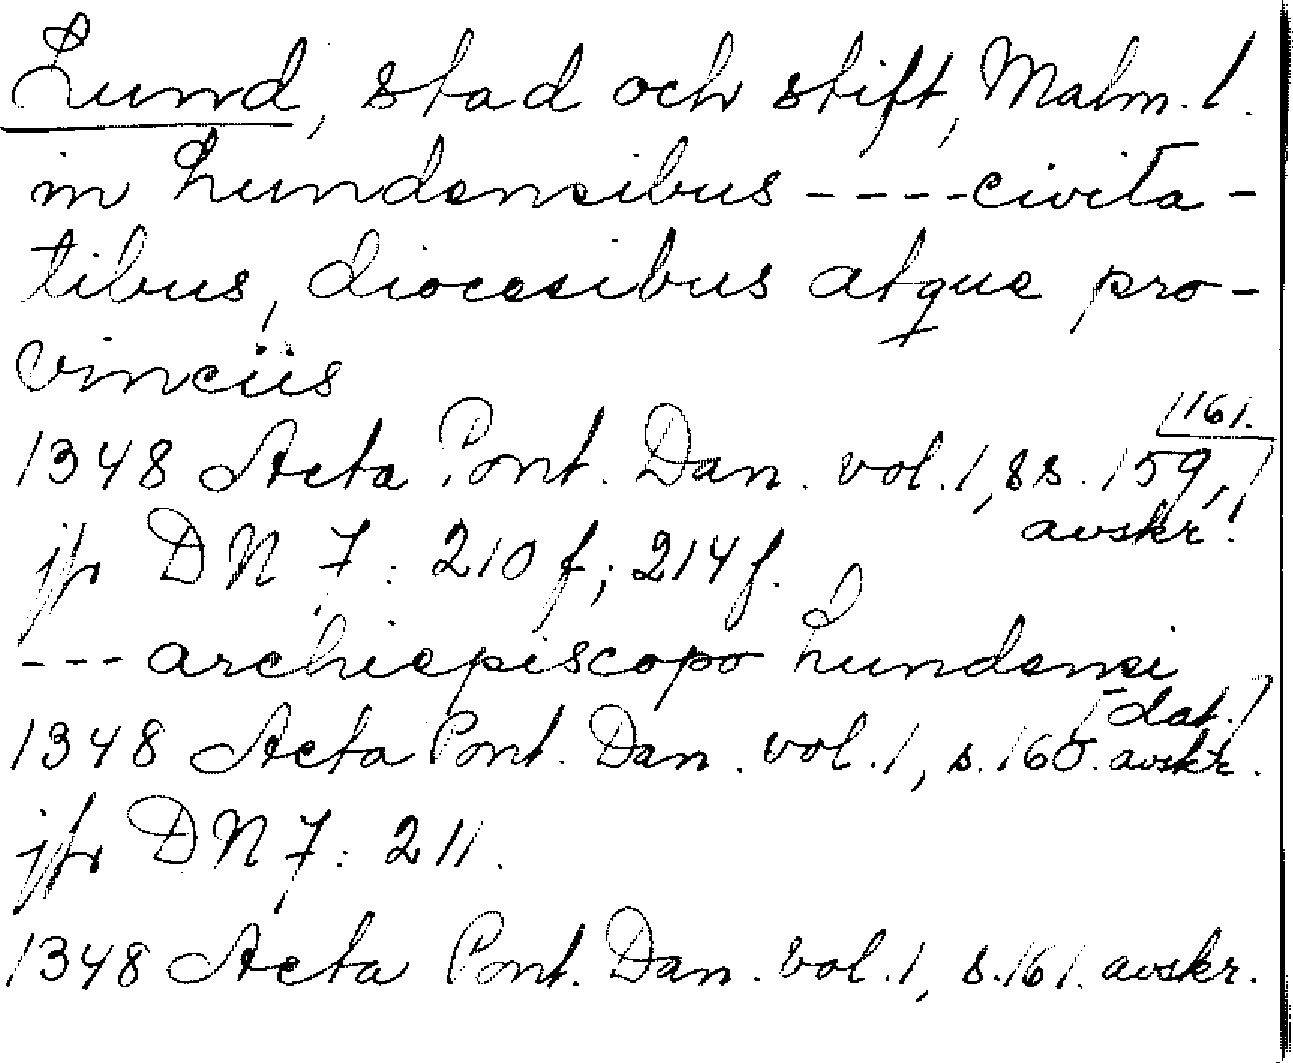 Lund, stad och stift, Malm. l.
in Lundensibus ----civita-
tibus, diocesibus atque pro-
vinciis
1348 Acta Pont. Dan. vol. 1, ss. 159, 161.
avskr.
jfr DN 7: 210 f; 214 f.
--- archiepiscopo Lundensi
dat.
1348 Acta Pont. Dan. vol. 1, s. 160. avskr.
jfr DN 7: 211.
1348 Acta Pont. Dan. vol. 1, s. 161. avskr.